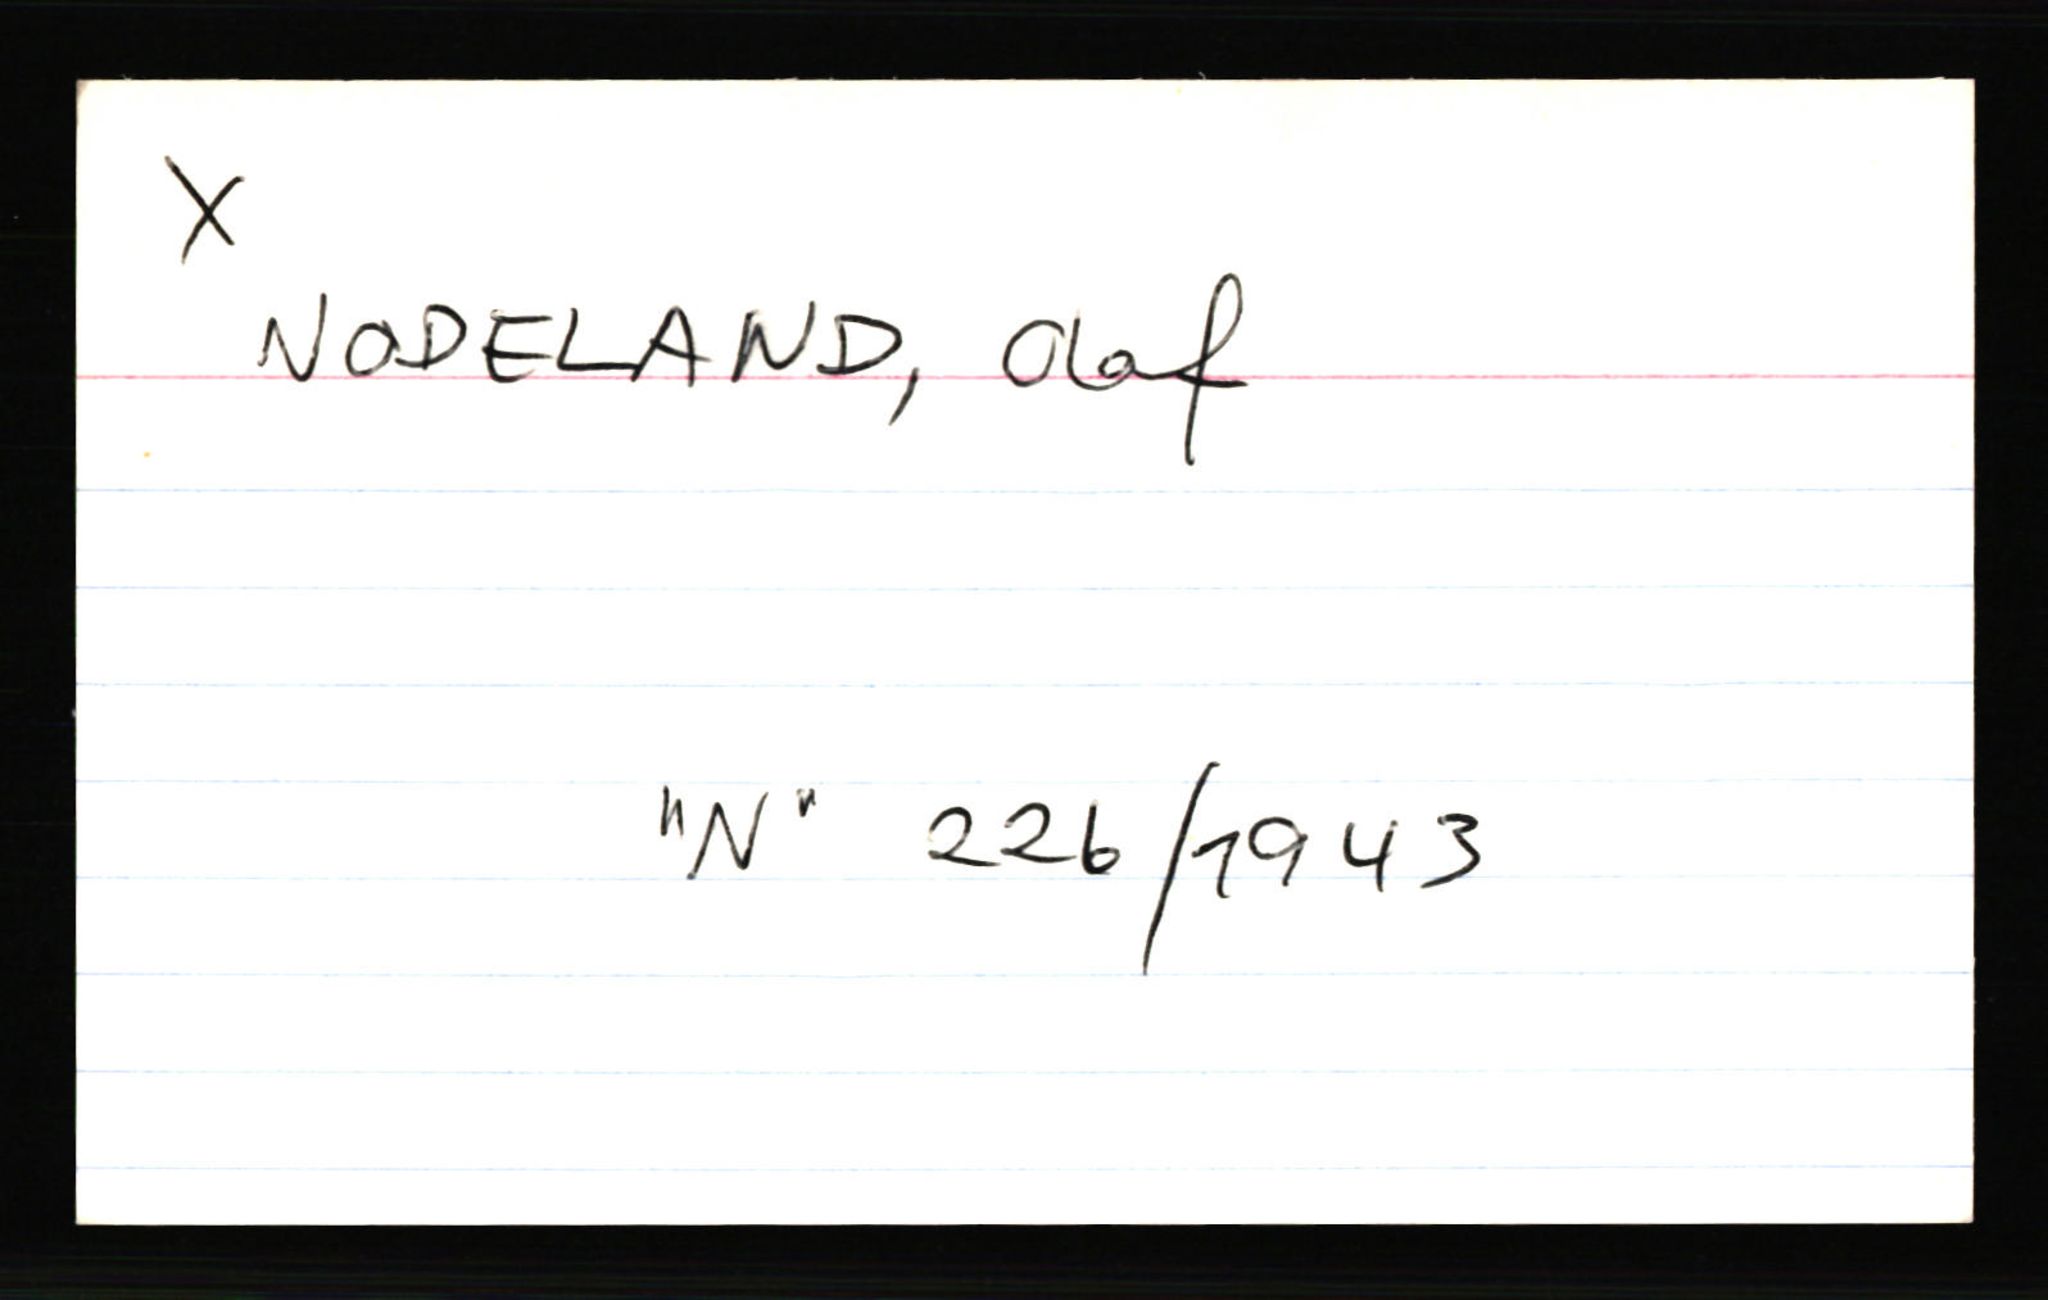 X
NODELAND, Olaf
"N" 226/1943